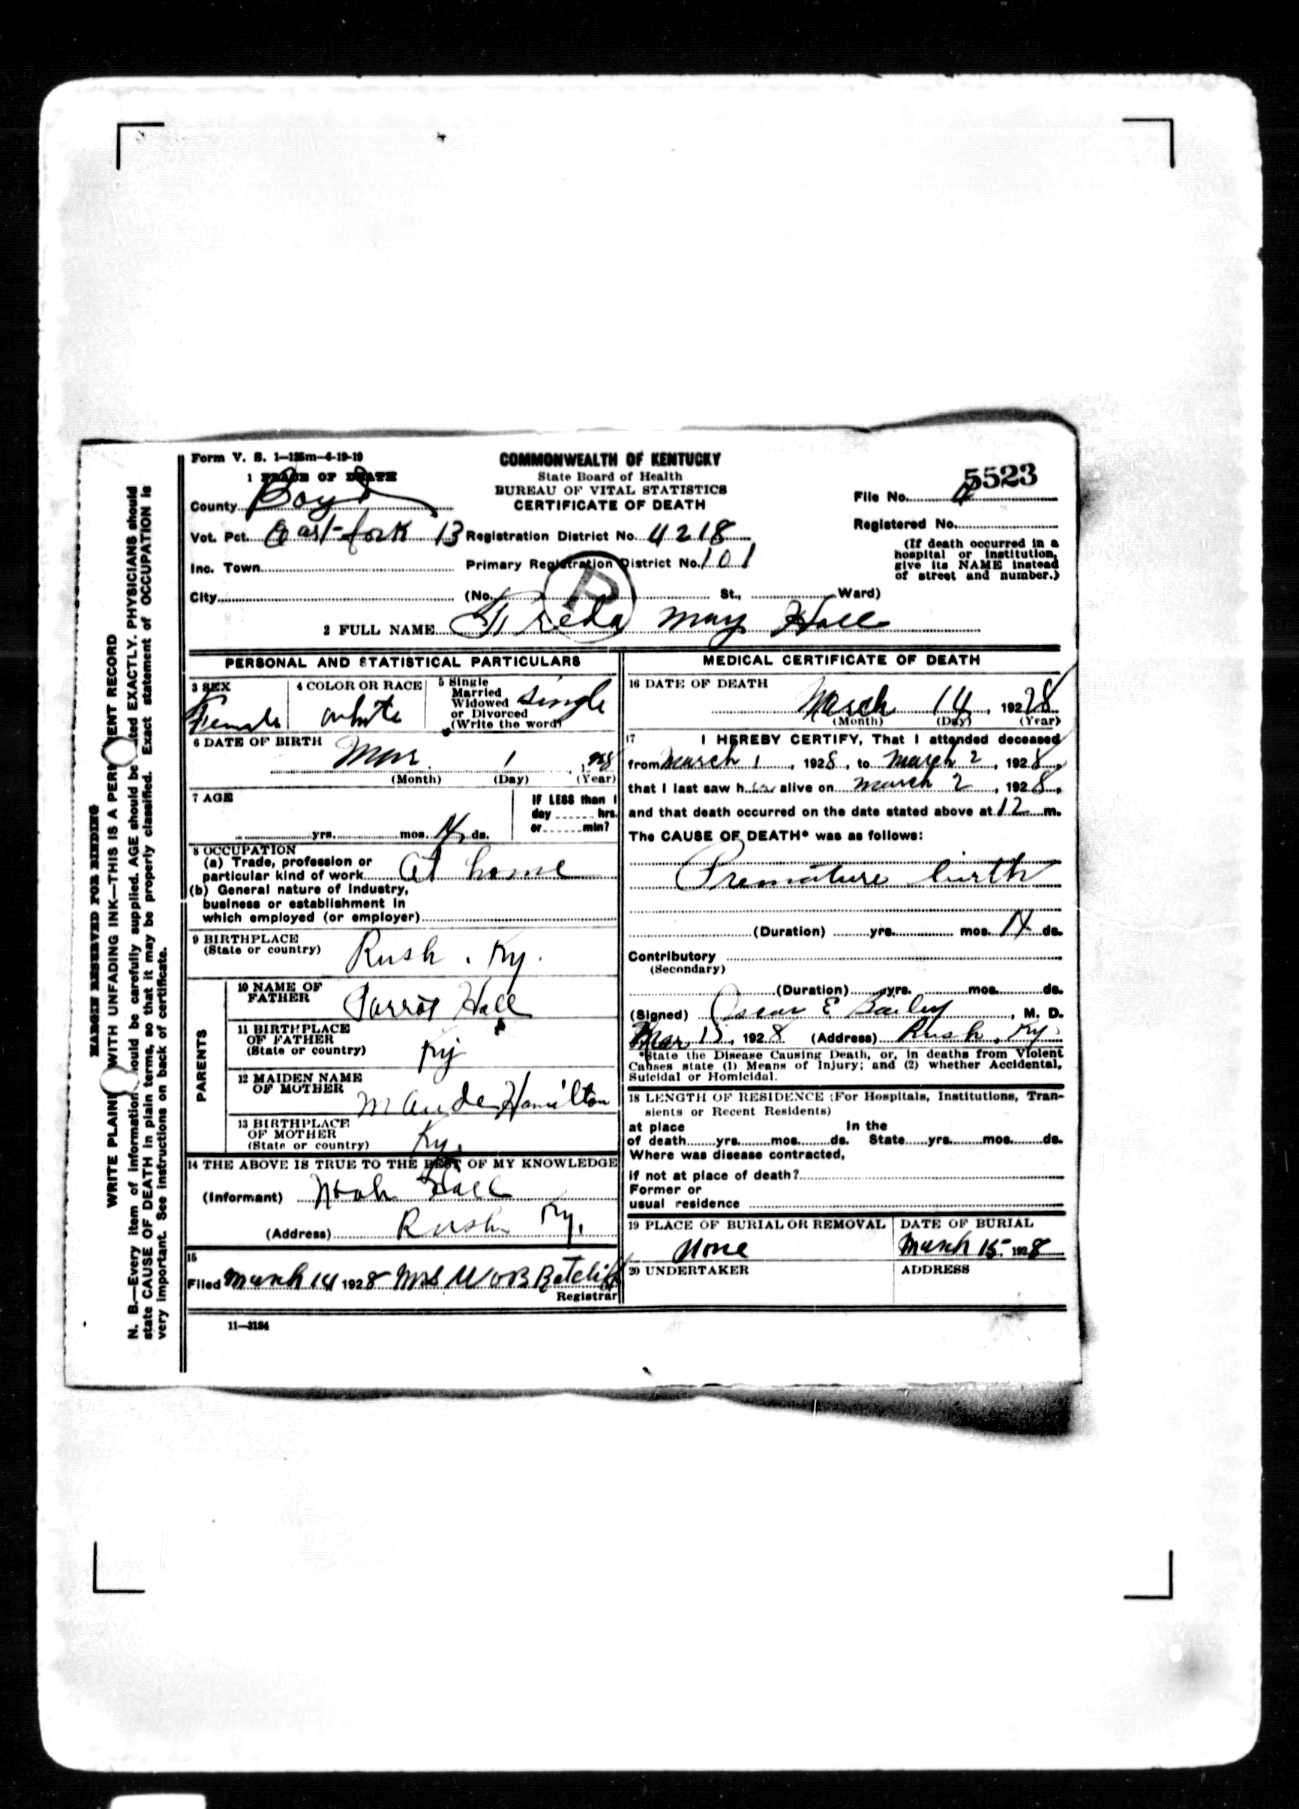 Form V. S. 1—125m—4-19-19
COMMONWEALTH OF KENTUCKY
State Board of Health
BUREAU OF VITAL STATISTICS
CERTIFICATE OF DEATH
1 PLACE OF DEATH
County Boyd
File No. 5523
Vot. Pct. East-fork 13 Registration District No. 4218
Registered No.
Inc. Town Primary Registration District No. 101
(If death occurred in a
hospital or institution,
give its NAME instead
of street and number.)
City (No. St., Ward)
R
2 FULL NAME Freda May Hall
PERSONAL AND STATISTICAL PARTICULARS
3 SEX
Female
4 COLOR OR RACE
white
5 Single
Married
Widowed
or Divorced
(Write the word)
Single
6 DATE OF BIRTH Mar. 1, 1928
(Month) (Day) (Year)
7 AGE
yrs. mos. 14 ds.
IF LESS than 1
day hrs.
or min?
8 OCCUPATION
(a) Trade, profession or
particular kind of work At home
(b) General nature of Industry,
business or establishment in
which employed (or employer)
9 BIRTHPLACE
(State or country) Rush. Ky.
PARENTS
10 NAME OF
FATHER Parrot Hall
11 BIRTHPLACE
OF FATHER
(State or country) Ky
12 MAIDEN NAME
OF MOTHER Maude Hamilton
13 BIRTHPLACE
OF MOTHER
(State or country) Ky.
14 THE ABOVE IS TRUE TO THE BEST OF MY KNOWLEDGE
(Informant) Noah Hall
(Address) Rush Ky.
15
Filed March 14 1928 Mrs
Registrar
11—3184
MEDICAL CERTIFICATE OF DEATH
16 DATE OF DEATH
March 14, 1928
(Month) (Day) (Year)
17 I HEREBY CERTIFY, That I attended deceased
from March 1, 1928, to March 2, 1928,
that I last saw her alive on March 2, 1928,
and that death occurred on the date stated above at 12 m.
The CAUSE OF DEATH* was as follows:
Premature birth
(Duration) yrs. mos. 14 ds.
Contributory
(Secondary)
(Duration) yrs. mos. ds.
(Signed) Oscar E Bailey, M. D.
Mar 15, 1928 (Address) Rush, Ky.
*State the Disease Causing Death, or, in deaths from Violent
Causes state (1) Means of Injury; and (2) whether Accidental,
Suicidal or Homicidal.
18 LENGTH OF RESIDENCE (For Hospitals, Institutions, Tran-
sients or Recent Residents)
at place In the
of death yrs. mos. ds. State yrs. mos. ds.
Where was disease contracted,
if not at place of death?
Former or
usual residence
19 PLACE OF BURIAL OR REMOVAL
None
DATE OF BURIAL
March 15, 1928
20 UNDERTAKER
ADDRESS
MARGIN RESERVED FOR BINDING
WRITE PLAINLY WITH UNFADING INK—THIS IS A PERMANENT RECORD
N. B.—Every item of information should be carefully supplied. AGE should be stated EXACTLY. PHYSICIANS should
state CAUSE OF DEATH in plain terms, so that it may be properly classified. Exact statement of OCCUPATION is
very important. See instructions on back of certificate.